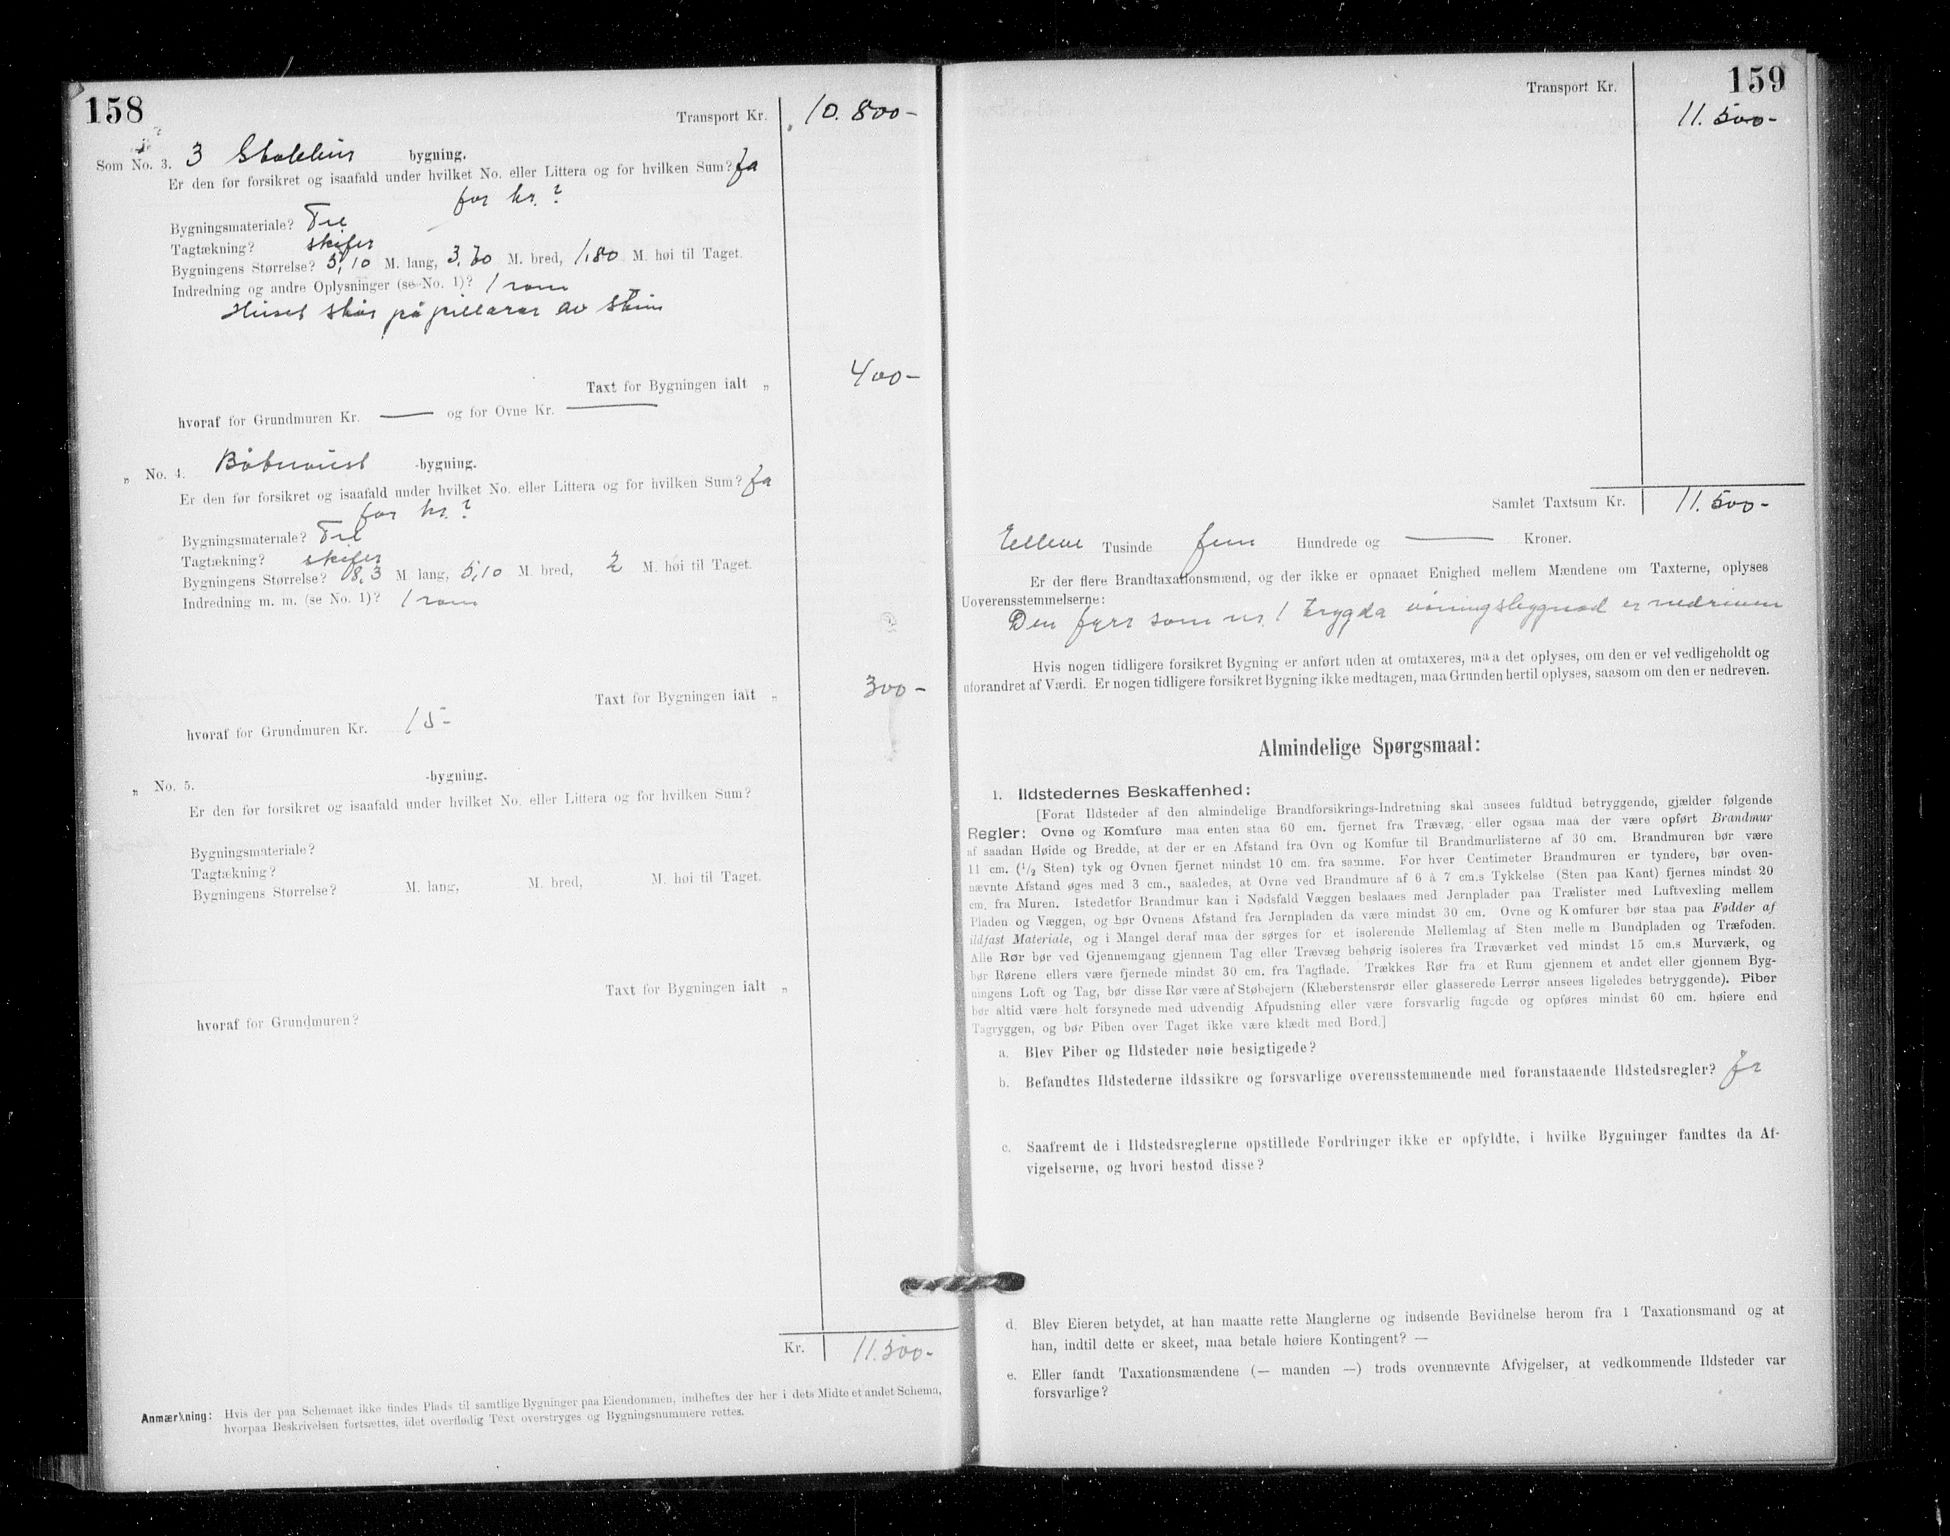 158
Transport Kr. 10.800-
Som No. 3. 3 Stokkhus bygning.
Er den før forsikret og isaafald under hvilket No. eller Littera og for hvilken Sum? Ja
for kr.?
Bygningsmateriale? Tre
Tagtækning? skifer
Bygningens Størrelse? 5,10 M. lang, 3,70 M. bred, 1,80 M. høi til Taget.
Indredning og andre Oplysninger (se No. 1)? 1 rom
Huset står på pillarar av stein
Taxt for Bygningen ialt „ 400-
hvoraf for Grundmuren Kr. — og for Ovne Kr. —
„ No. 4. Båtnaust -bygning.
Er den før forsikret og isaafald under hvilket No. eller Littera og for hvilken Sum? Ja
for kr.?
Bygningsmateriale? Tre
Tagtækning? skifer
Bygningens Størrelse? 8,3 M. lang, 5,10 M. bred, 2 M. høi til Taget.
Indredning m. m. (se No. 1)? 1 rom
Taxt for Bygningen ialt „ 300-
hvoraf for Grundmuren Kr. 15-
„ No. 5. -bygning.
Er den før forsikret og isaafald under hvilket No. eller Littera og for hvilken Sum?
Bygningsmateriale?
Tagtækning?
Bygningens Størrelse? M. lang, M. bred, M. høi til Taget.
Taxt for Bygningen ialt „
hvoraf for Grundmuren?
Kr. 11.500-
Anmærkning: Hvis der paa Schemaet ikke findes Plads til samtlige Bygninger paa Eiendommen, indheftes der her i dets Midte et andet Schema,
hvorpaa Beskrivelsen fortsættes, idet overflødig Text overstryges og Bygningsnummere rettes.
159
Transport Kr. 11.500-
Samlet Taxtsum Kr. 11.500-
Elleve Tusinde fem Hundrede og — Kroner.
Er der flere Brandtaxationsmænd, og der ikke er opnaaet Enighed mellem Mændene om Taxterne, oplyses
Uoverensstemmelserne:
Den fyrr som nr. 1 trygda våningsbygnad er nedriven
Hvis nogen tidligere forsikret Bygning er anført uden at omtaxeres, maa det oplyses, om den er vel vedligeholdt og
uforandret af Værdi. Er nogen tidligere forsikret Bygning ikke medtagen, maa Grunden hertil oplyses, saasom om den er nedreven.
Almindelige Spørgsmaal:
1. Ildstedernes Beskaffenhed:
[Forat Ildsteder af den almindelige Brandforsikrings-Indretning skal ansees fuldtud betryggende, gjælder følgende
Regler: Ovne og Komfure maa enten staa 60 cm. fjernet fra Trævæg, eller ogsaa maa der være opført Brandmur
af saadan Høide og Bredde, at der er en Afstand fra Ovn og Komfur til Brandmurlisterne af 30 cm. Brandmuren bør være
11 cm. (1/2 Sten) tyk og Ovnen fjernet mindst 10 cm. fra samme. For hver Centimeter Brandmuren er tyndere, bør oven-
nævnte Afstand øges med 3 cm., saaledes, at Ovne ved Brandmure af 6 à 7 cm.s Tykkelse (Sten paa Kant) fjernes mindst 20
cm. fra Muren. Istedetfor Brandmur kan i Nødsfald Væggen beslaaes med Jernplader paa Trælister med Luftvexling mellem
Pladen og Væggen, og bør Ovnens Afstand fra Jernpladen da være mindst 30 cm. Ovne og Komfurer bør staa paa Fødder af
ildfast Materiale, og i Mangel deraf maa der sørges for et isolerende Mellemlag af Sten mellem Bundpladen og Træfoden.
Alle Rør bør ved Gjennemgang gjennem Tag eller Trævæg behørig isoleres fra Træværket ved mindst 15 cm.s Murværk, og
bør Rørene ellers være fjernede mindst 30 cm. fra Tagflade. Trækkes Rør fra et Rum gjennem et andet eller gjennem Byg-
ningens Loft og Tag, bør disse Rør være af Støbejern (Klæberstensrør eller glasserede Lerrør ansees ligeledes betryggende). Piber
bør altid være helt forsynede med udvendig Afpudsning eller være forsvarlig fugede og opføres mindst 60 cm. høiere end
Tagryggen, og bør Piben over Taget ikke være klædt med Bord.]
a. Blev Piber og Ildsteder nøie besigtigede?
b. Befandtes Ildstederne ildssikre og forsvarlige overensstemmende med foranstaaende Ildstedsregler? Ja
c. Saafremt de i Ildstedsreglerne opstillede Fordringer ikke er opfyldte, i hvilke Bygninger fandtes da Af-
vigelserne, og hvori bestod disse?
d. Blev Eieren betydet, at han maatte rette Manglerne og indsende Bevidnelse herom fra 1 Taxationsmand og at
han, indtil dette er skeet, maa betale høiere Kontingent? —
e. Eller fandt Taxationsmændene (— manden —) trods ovennævnte Afvigelser, at vedkommende Ildsteder var
forsvarlige?